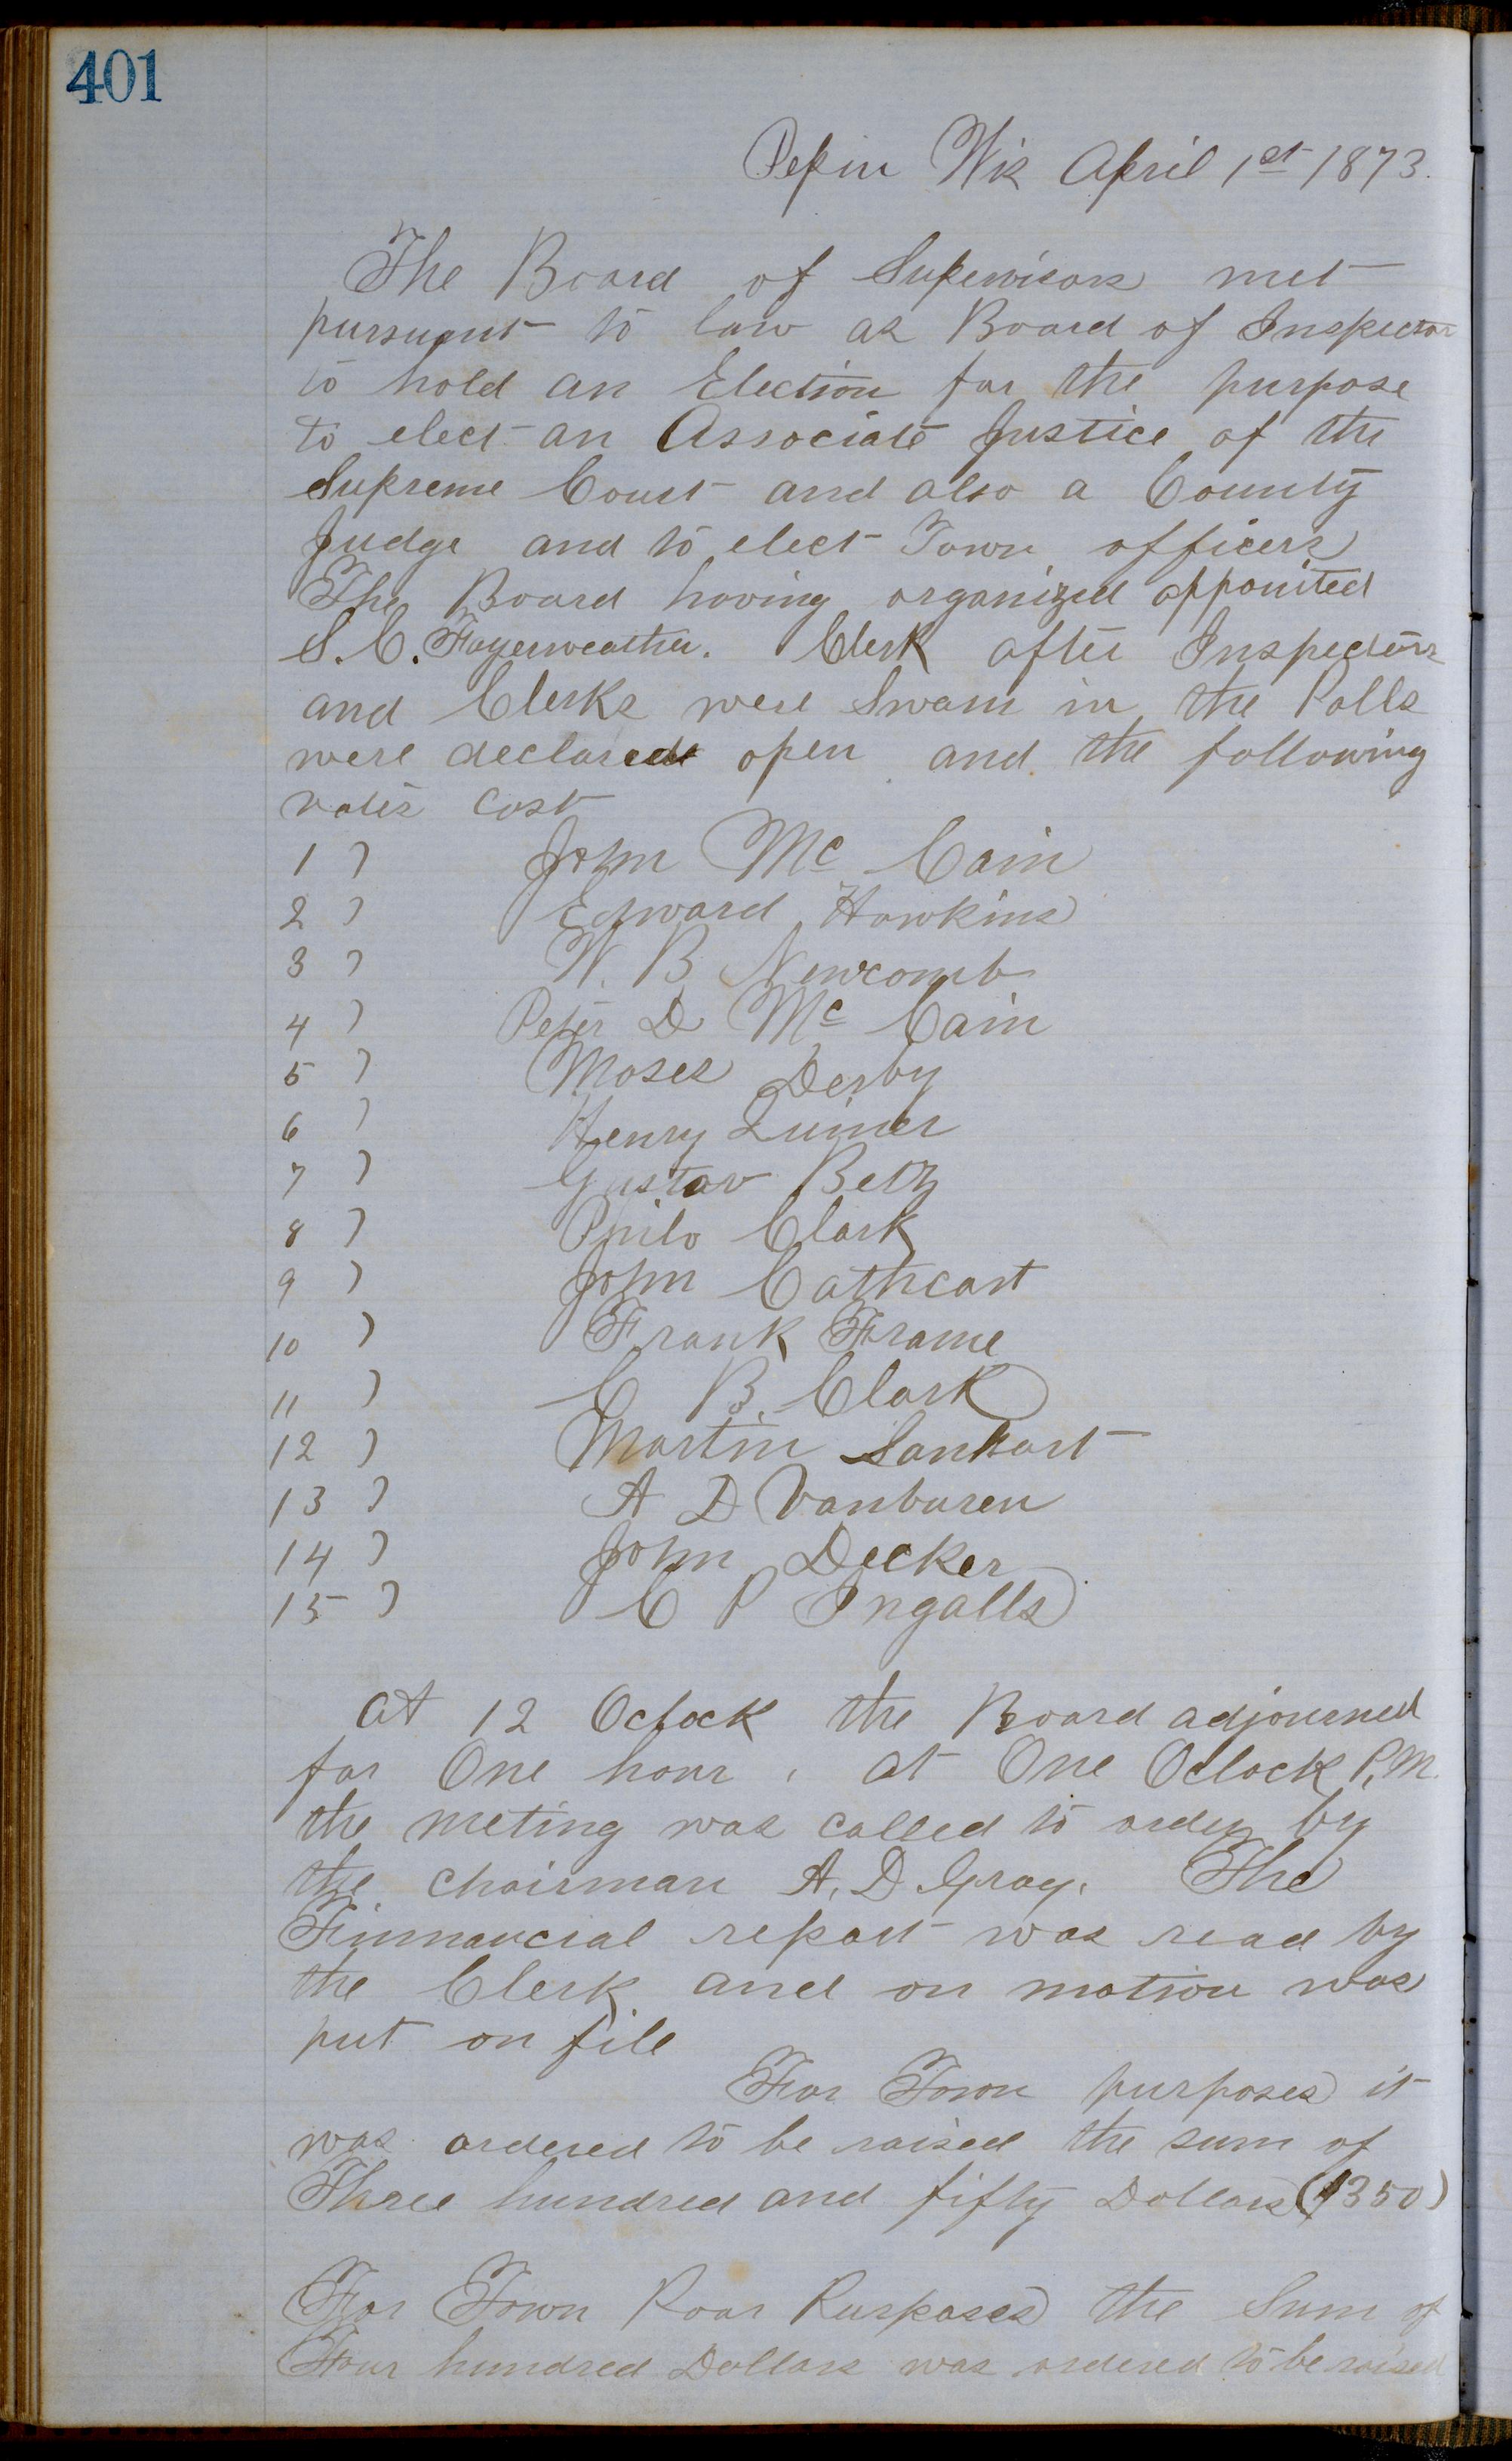 401
Pepin Wis April 1st 1873.
The Board of Supervisors met
pursuant to law as Board of Inspector
to hold an Election for the purpose
to elect an Associate Justice of the
Supreme Court and also a County
Judge and to elect Town officers
The Board having organized appointed
S. C. Fayerweather. Clerk after Inspectors
and Clerks were Sworn in the Polls
were declared open and the following
votes cast
1 ) John Mc Cain
2 ) Edward Hawkins
3 ) W. B Newcomb
4 ) Peter D Mc Cain
5 ) Moses Derby
6 ) Henry
7 ) Gustav Betz
8 ) Philo Clark
9 ) John Cathcart
10 ) Frank Frame
11 ) C B. Clark
12 ) Martin Sankart
13 ) A D Vanburen
14 ) John Decker
15 ) C P Ingalls
at 12 Oclock the Board adjourned
for One hour, at One Oclock P.M.
the meting was called to order by
the chairman A. D Gray. The
Finnancial report was read by
the Clerk and on motion was
put on file
For Town purposes it
was ordered to be raised the sum of
Three hundred and fifty Dollars ($350)
For Town Poor Purposes the Sum of
Four hundred Dollars was ordered to be raised